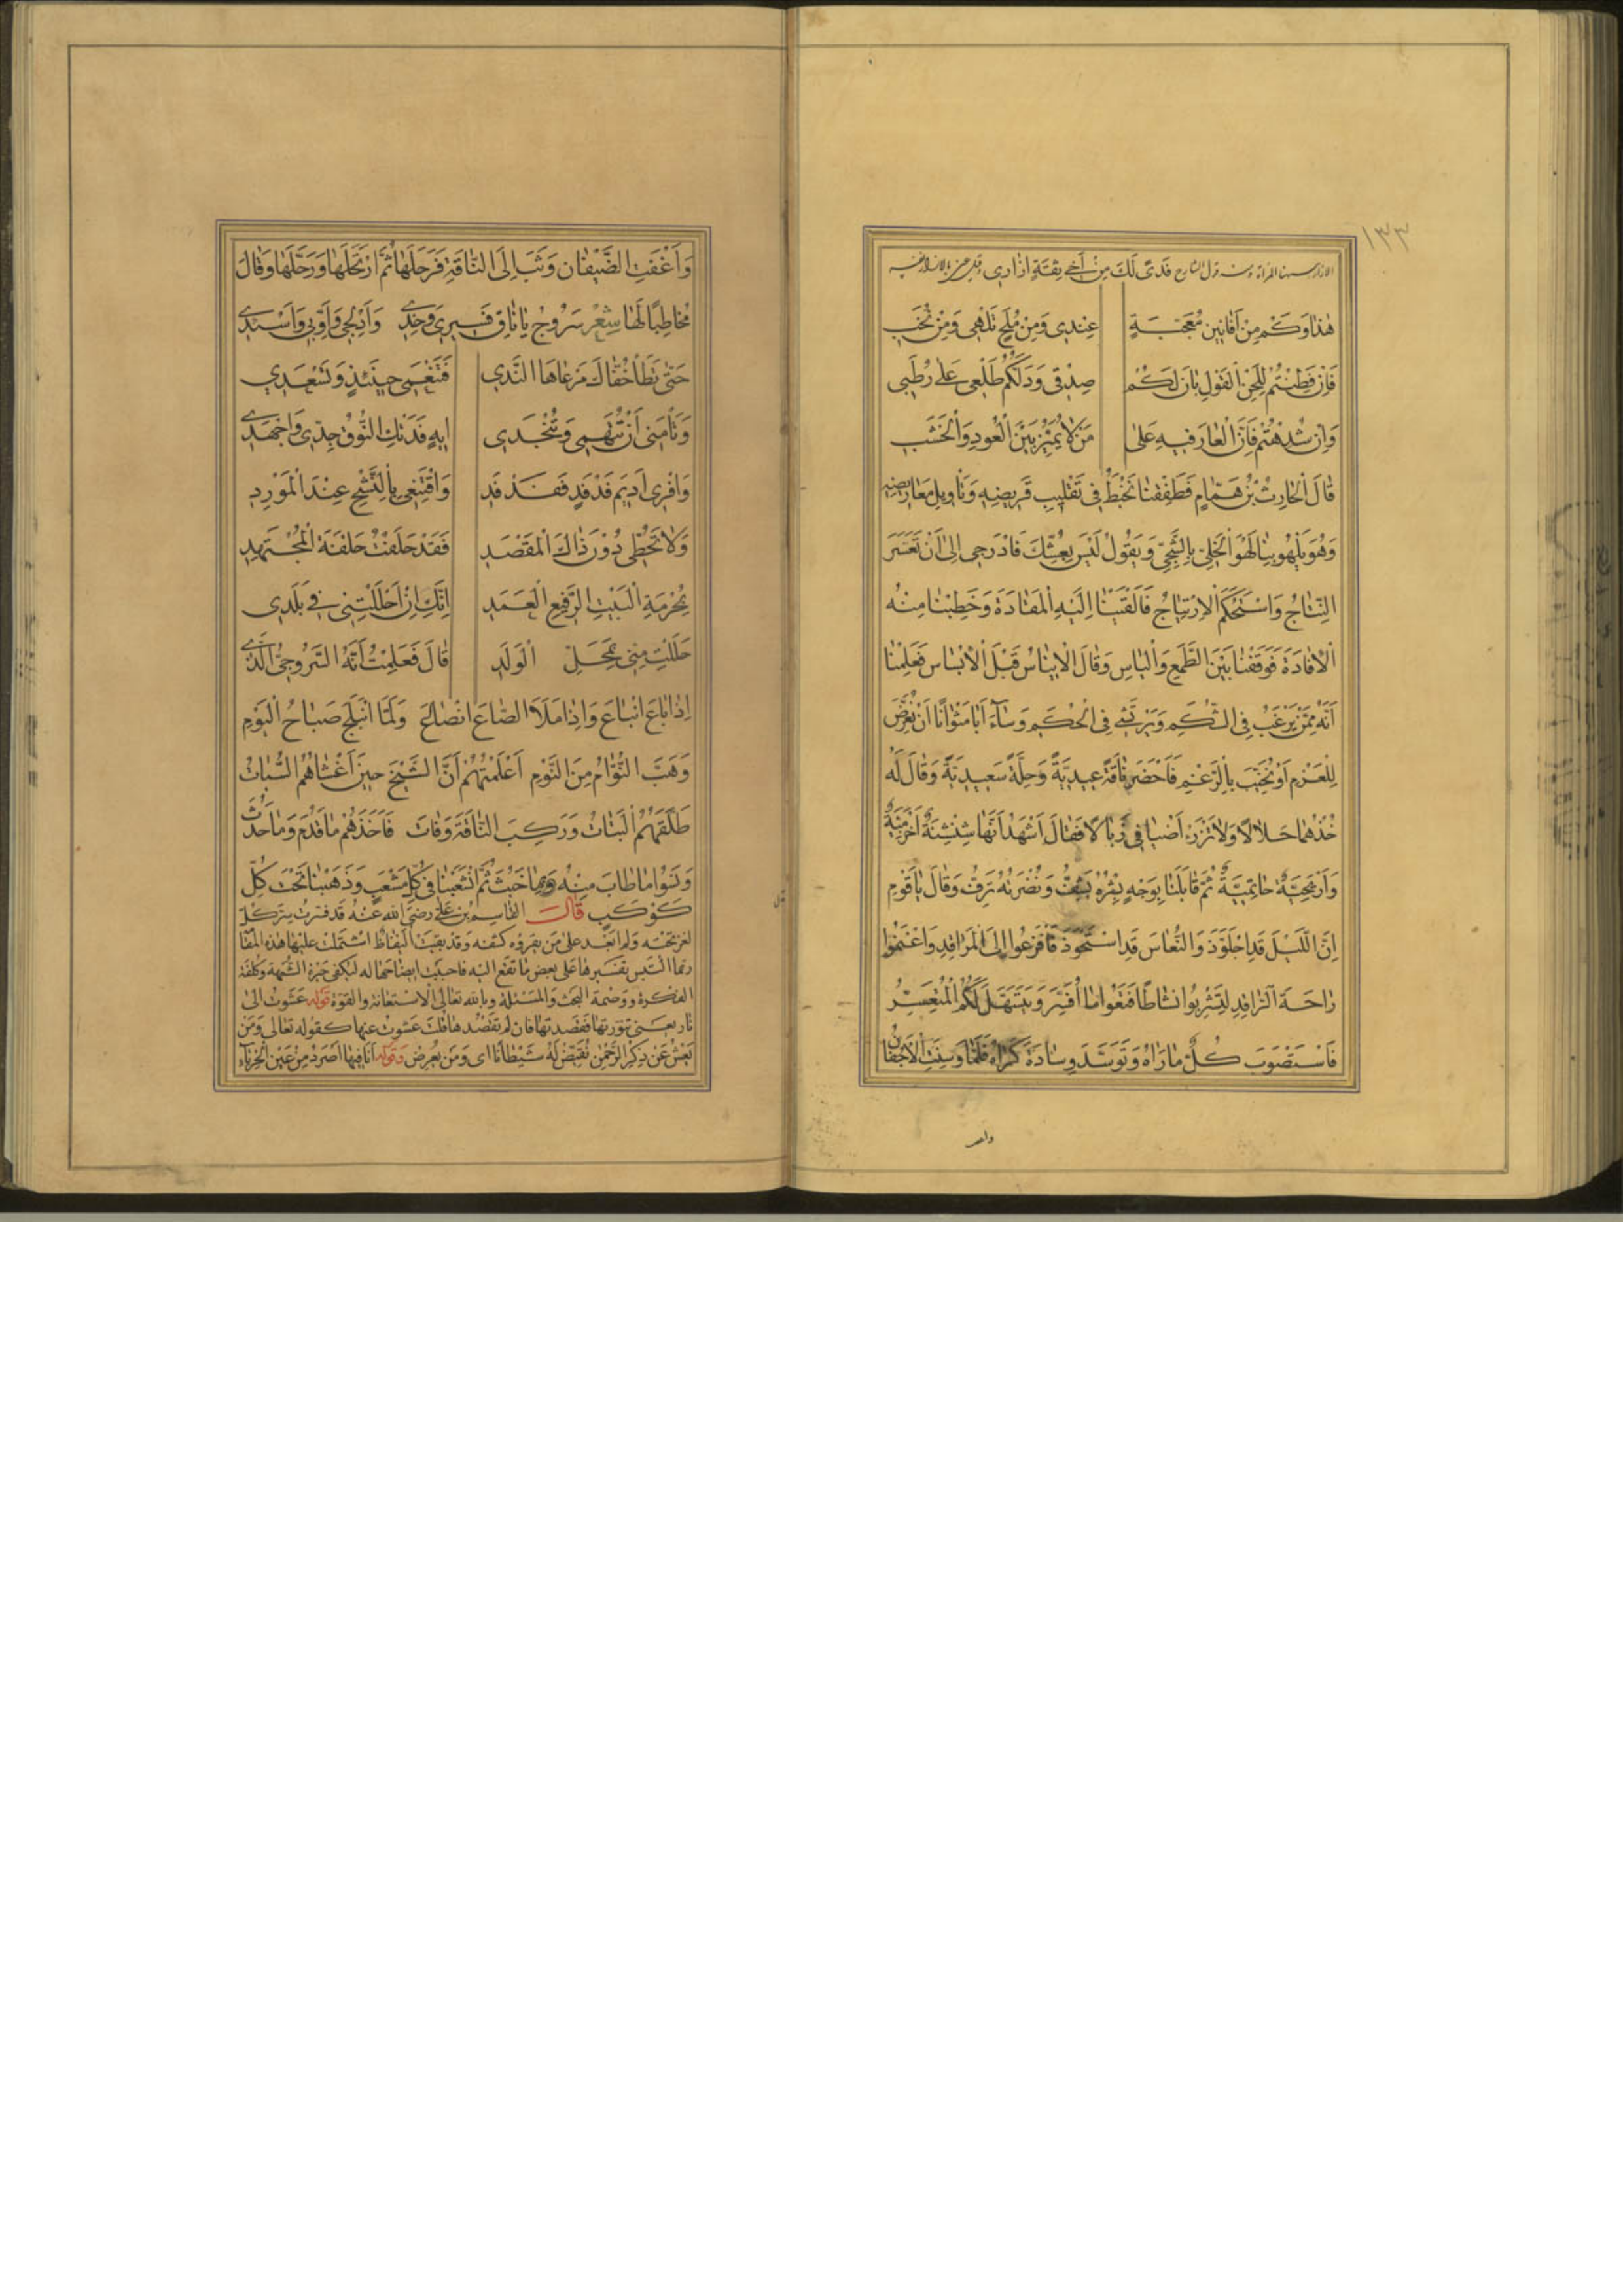 ١٣٣
فدًى لَكَ مِنْ أَخِي ثِقَةٍ إِزَارِي
هٰذَا وَكَمْ مِنْ أَفَانِينَ مُعْجِبَةٍ عِنْدِي وَمِنْ مُلَحٍ تُلْهِي وَمِنْ نُخَبِ
فَإِنْ فَطِنْتُمْ لِلَحْنِ الْقَوْلِ بَانَ لَكُمْ صِدْقِي وَدَلَّكُمْ طَلْعِي عَلَى رُطَبِي
وَإِنْ شُدِهْتُمْ فَإِنَّ الْعَارَ فِيهِ عَلَى مَنْ لَا يُمَيِّزُ بَيْنَ الْعُودِ وَالْخَشَبِ
قَالَ الْحَارِثُ بْنُ هَمَّامٍ فَطَفِقْنَا نَخْبِطُ فِي تَقْلِيبِ قَرِيضِهِ وَتَأْوِيلِ مَعَارِيضِهِ
وَهُوَ يَلْهُو بِنَا لَهْوَ الْخَلِيِّ بِالشَّجِيِّ وَيَقُولُ لَيْسَ بِعُشِّكَ فَادْرُجِي إِلَى أَنْ تَعَسَّرَ
النِّتَاجُ وَاسْتَحْكَمَ الْاِرْتِتَاجُ فَأَلْقَيْنَا إِلَيْهِ الْمَقَادَةَ وَخَطَبْنَا مِنْهُ
الْاِفَادَةَ فَوَقَفْنَا بَيْنَ الطَّمَعِ وَالْيَاسِ وَقَالَ الْاِينَاسُ قَبْلَ الْاِبْسَاسِ فَعَلِمْنَا
أَنَّهُ مِمَّنْ يَرْغَبُ فِي الشُّكْمِ وَيَرْتَشِي فِي الْحُكْمِ وَسَاءَ أَبَا مَثْوَانَا أَنْ نُعَرَّضَ
لِلْغُرْمِ أَوْ نُخَيَّبَ بِالرُّغْمِ فَأَحْضَرَ نَاقَةً عِيدِيَّةً وَحُلَّةً سَعِيدِيَّةً وَقَالَ لَهُ
خُذْهُمَا حَلَالًا وَلَا تَرْزَءْ أَضْيَافِي زِبَالًا فَقَالَ أَشْهَدُ أَنَّهَا شِنْشِنَةٌ أَخْزَمِيَّةٌ
وَأَرْيَحِيَّةٌ حَاتِمِيَّةٌ ثُمَّ قَابَلَنَا بِوَجْهٍ بِشْرُهُ يَشِفُّ وَنُضْرَتُهُ تَرِفُّ وَقَالَ يَا قَوْمِ
إِنَّ اللَّيْلَ قَدِ اجْلَوَّذَ وَالنُّعَاسَ قَدِ اسْتَحْوَذَ فَافْزَعُوا إِلَى الْمَرَاقِدِ وَاغْتَنِمُوا
رَاحَةَ الرَّاقِدِ لِتَشْرَبُوا نَشَاطًا فَتَعُوا مَا أُفَسِّرُ وَيَتَسَهَّلَ لَكُمُ الْمُتَعَسِّرُ
فَاسْتَصْوَبَ كُلٌّ مَا رَآهُ وَتَوَسَّدَ وِسَادَةَ كَرَاهُ فَلَمَّا وَسِنَتِ الْاَجْفَانُ
وَأَغْفَتِ الضِّيفَانُ وَثَبَ إِلَى النَّاقَةِ فَرَحَلَهَا ثُمَّ ارْتَحَلَهَا وَرَحَّلَهَا وَقَالَ
مُخَاطِبًا لَهَا شِعْرٌ سَرُوجَ يَا نَاقَ فَسِيرِي وَخِدِي وَأَدْلِجِي وَأَوِّبِي وَأَسْئِدِي
حَتَّى تَطَأَ خُفَّاكَ مَرْعَاهَا النَّدِي فَتَنْعَمِي حِينَئِذٍ وَتَسْعَدِي
وَتَأْمَنِي أَنْ تُتْهِمِي وَتُنْجِدِي إِيهِ فَدَتْكِ النُّوقُ جِدِّي وَاجْهَدِي
وَافْرِي أَدِيمَ فَدْفَدٍ فَفَدْفَدِ وَاقْتَنِعِي بِالنَّشْحِ عِنْدَ الْمَوْرِدِ
وَلَا تَحُطِّي دُونَ ذَاكَ الْمَقْصَدِ فَقَدْ حَلَفْتُ حَلْفَةَ الْمُجْتَهِدِ
بِحُرْمَةِ الْبَيْتِ الرَّفِيعِ الْعَمَدِ إِنَّكِ إِنْ أَحْلَلْتِنِي فِي بَلَدِي
حَلَلْتِ مِنِّي بِمَحَلِّ الْوَلَدِ قَالَ فَعَلِمْتُ أَنَّهُ السَّرُوجِيُّ الَّذِي
إِذَا بَاعَ انْبَاعَ وَإِذَا مَلَأَ الصَّاعَ انْصَاعَ وَلَمَّا انْبَلَجَ صَبَاحُ الْيَوْمِ
وَهَبَّ النُّوَّامُ مِنَ النَّوْمِ أَعْلَمْتُهُمْ أَنَّ الشَّيْخَ حِينَ أَغْشَاهُمُ السُّبَاتُ
طَلَّقَهُمُ الْبَتَاتَ وَرَكِبَ النَّاقَةَ وَفَاتَ فَأَخَذَهُمْ مَا قَدُمَ وَمَا حَدُثَ
وَنَسُوا مَا طَابَ مِنْهُ بِمَا خَبُثَ ثُمَّ انْشَعَبْنَا فِي كُلِّ مَشْعَبٍ وَذَهَبْنَا تَحْتَ كُلِّ
كَوْكَبٍ قَالَ القاسم بن علي رضي الله عنه قد فسرت سر كل
لغز تحته ولم ابعد على من يقروه كشفه وقد بقيت اليفاظ اشتملت عليها هذه المقا
ربما التبس تفسيرها على بعض من تقع اليه فاحببت ايضاحها له ليكفى حيرة الشبهة وكلفة
الفكرة ووصمة البحث والمسئلة وبالله تعالى الاستعانة والقوة قوله عشوت الى
نار يعنى تنورتها فقصدتها فان لم تقصدها قلت عشوت عنها كقوله تعالى ومن
يعش عن ذكر الرحمن نقيض له شيطانا اى ومن يعرض وقوله انا فيها اصرد من عين الحرباء